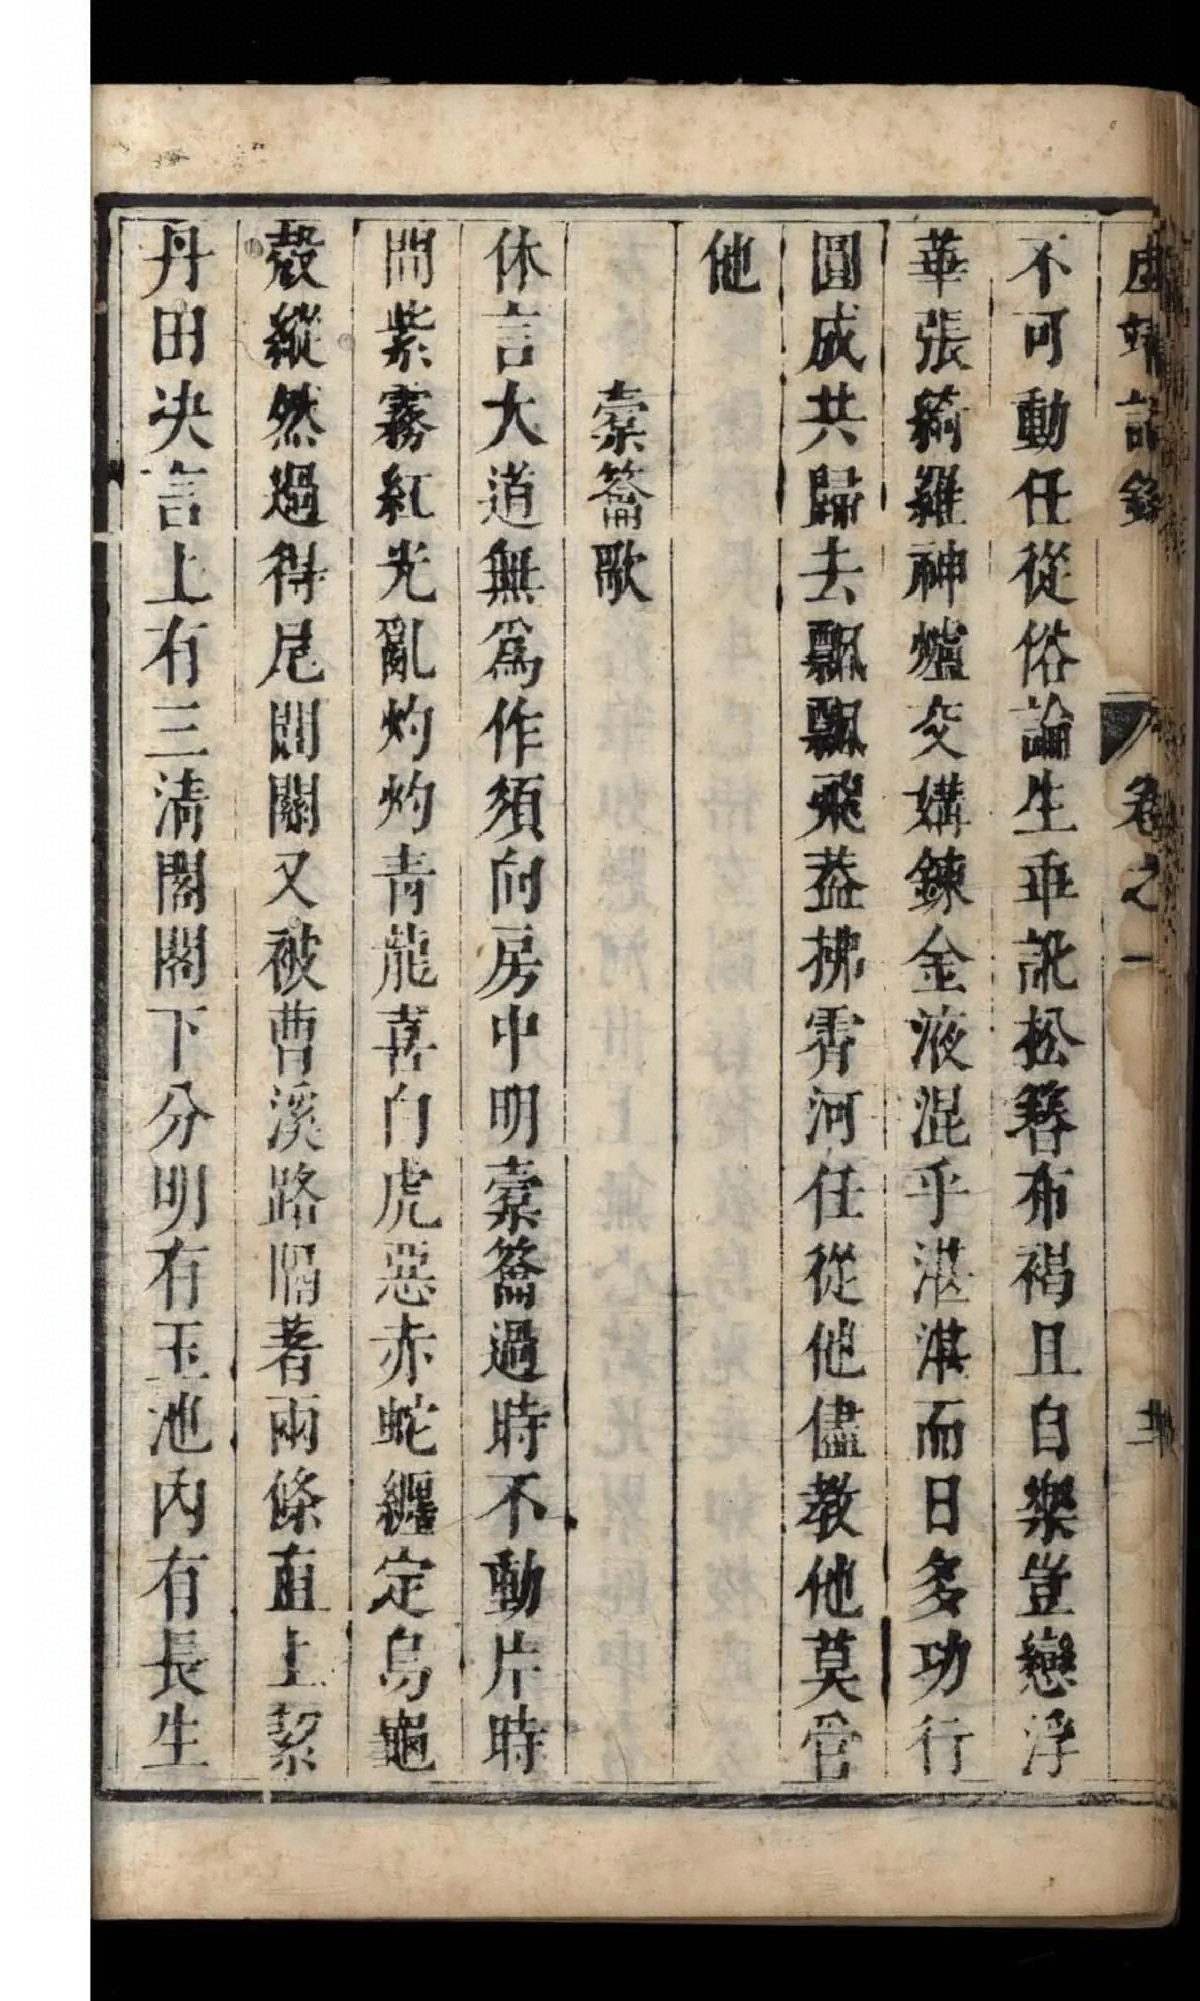 虛靖語錄 卷之一
不可動任從俗論生乖訛松簪布褐且自樂豈戀浮
華張綺羅神爐交媾鍊金液混乎湛湛而日多功行
圓成共歸去飄飄飛葢拂霄河任從他儘教他莫管
他
橐籥歌
休言大道無爲作須向房中明橐籥過時不動片時
間紫霧紅光亂灼灼青龍喜白虎惡赤蛇纏定烏龜
殼縱然過得尾閭關又被曹溪路隔著兩條直上絜
丹田决言上有三淸閣閣下分明有玉池內有長生